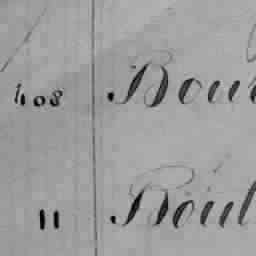 408 Bour
11 Boul